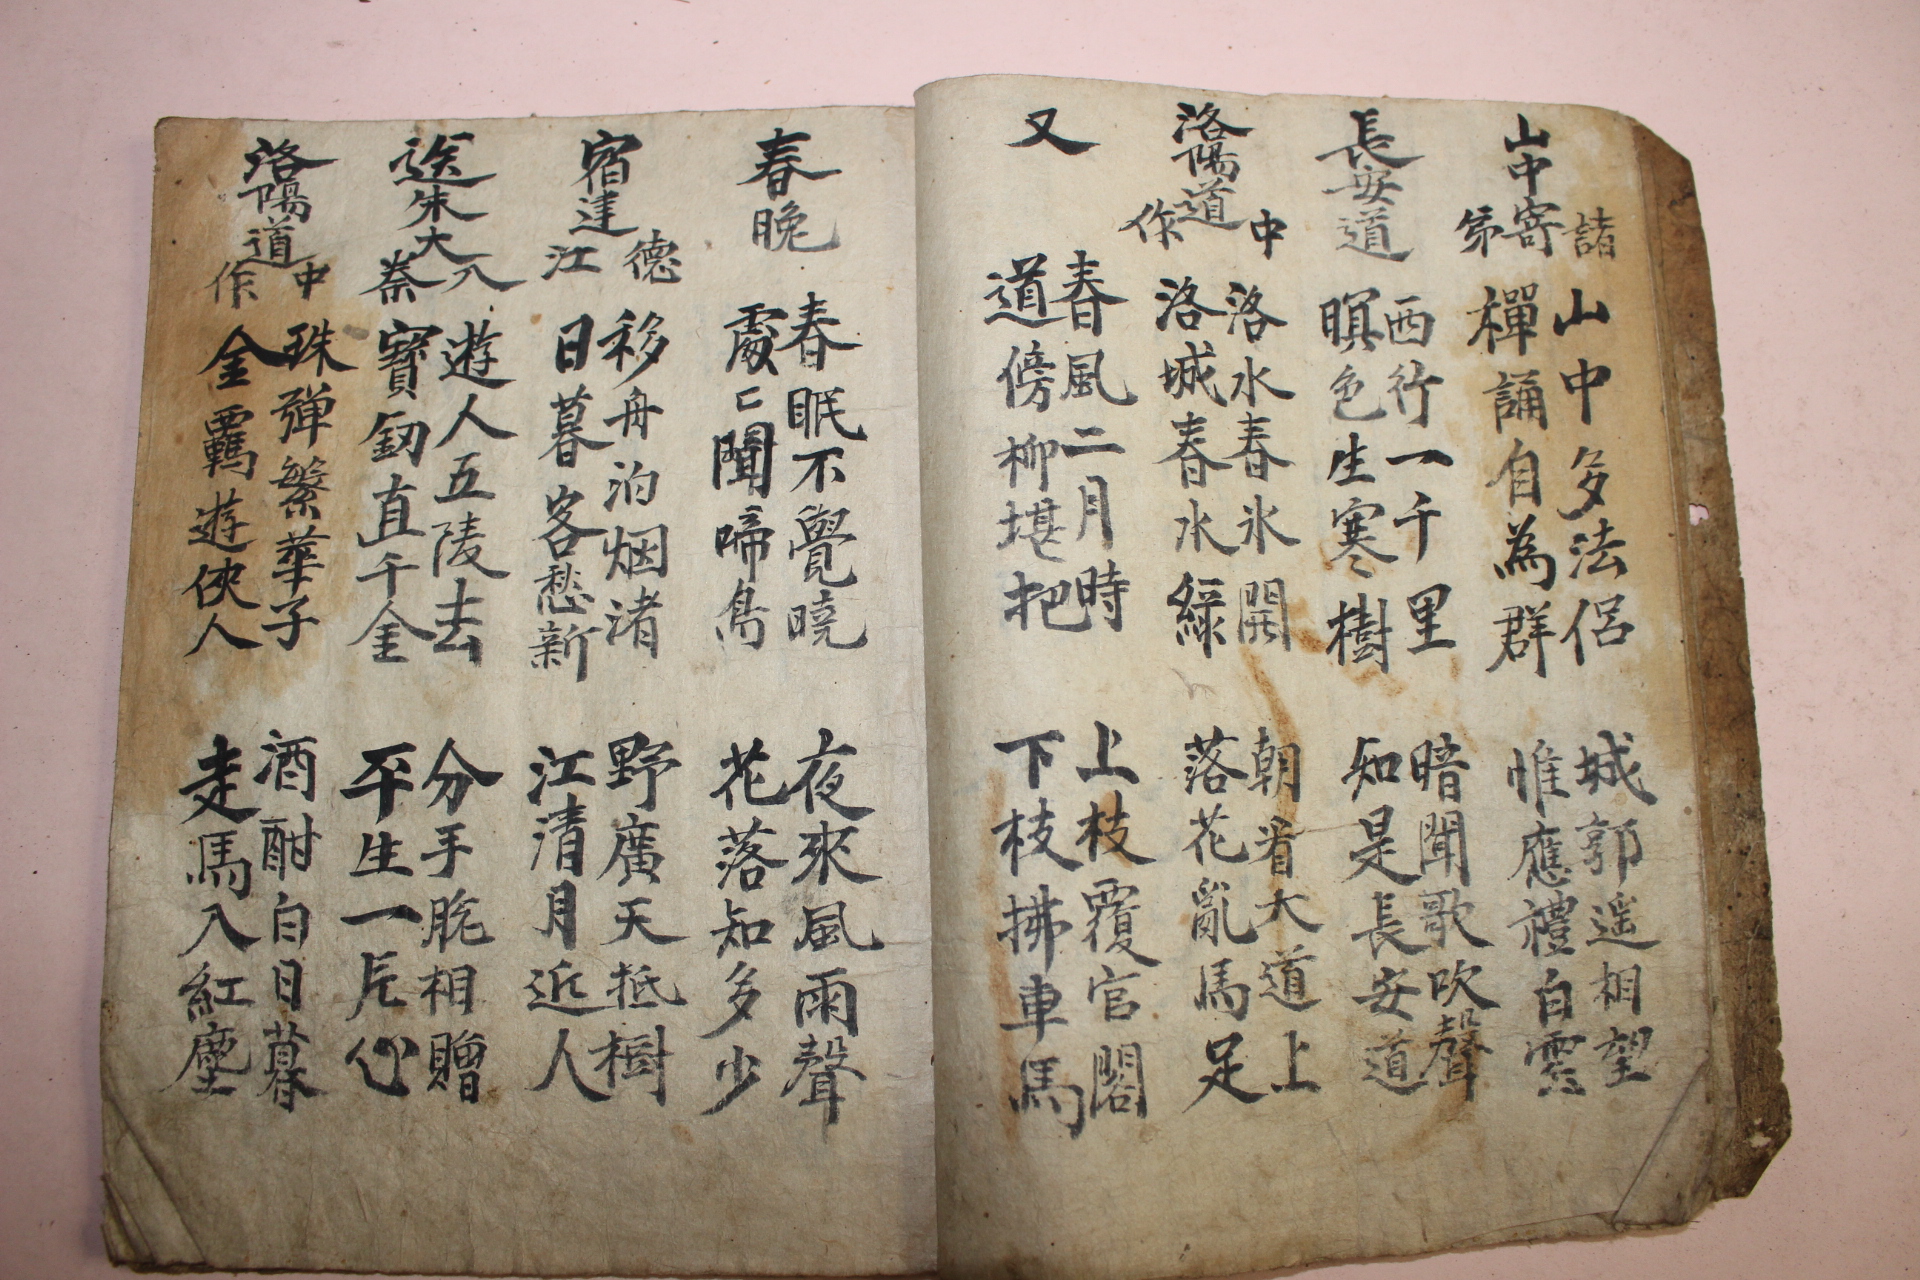 山中寄諸弟
山中多法侶
禪誦自為群
城郭遥相望
惟應禮白雲
長安道
西行一千里
暝色生寒樹
暗聞歌吹聲
知是長安道
洛陽道中作
洛水春氷開
洛城春水綠
朝看大道上
落花亂馬足
又
春風二月時
道傍柳堪把
上枝覆官閣
下枝拂車馬
春晚
春眠不覺曉
處〻聞啼鳥
夜來風雨聲
花落知多少
宿建德江
移舟泊烟渚
日暮客愁新
野廣天抵樹
江清月近人
送朱大入秦
遊人五陵去
寶釰直千金
分手脫相贈
平生一片心
洛陽道中作
珠弹繁華子
金羈遊俠人
酒酣白日暮
走馬入紅塵